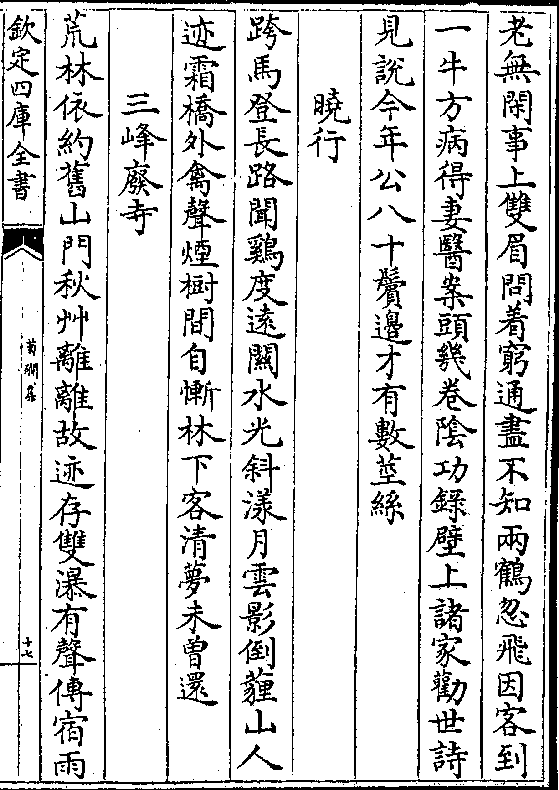 老無閑事上雙眉問着窮通盡不知兩鶴忽飛因客到
一牛方病得妻醫案頭幾卷陰功錄壁上諸家勸世詩
見說今年公八十鬢邊才有數莖絲
曉行
跨馬登長路聞鷄度遠關水光斜漾月雲影倒薶山人
迹霜橋外禽聲煙樹間自慚林下客清夢未曾還
三峰廢寺
荒林依約舊山門秋艸離離故迹存雙瀑有聲傳宿雨
欽定四庫全書
菊磵集
十七